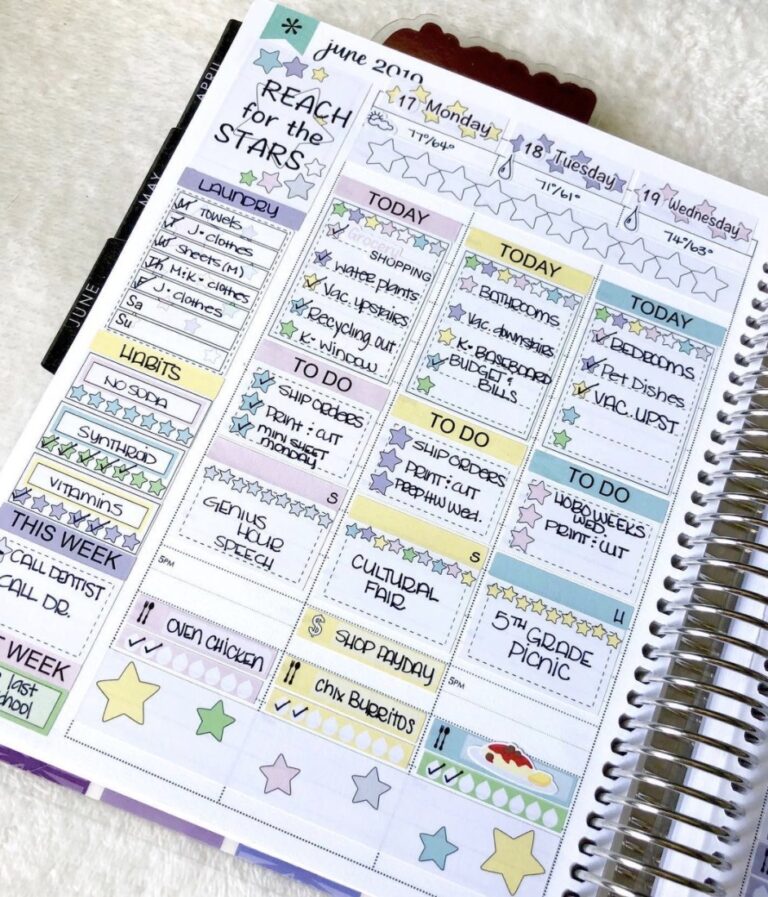 APRIL
MAY
JUNE
june 2019
REACH
for the
STARS
LAUNDRY
M Towels
T J. clothes
W Sheets (M)
Th M·K· clothes
F J. clothes
Sa
Su
HABITS
NO SODA
SYNTHROID
VITAMINS
THIS WEEK
CALL DENTIST
CALL DR.
T WEEK
last
chool
17 Monday
77°/64°
TODAY
Grocery
SHOPPING
Water plants
Vac. upstairs
Recycling out
K· WINDOW
TO DO
SHIP ORDERS
PRINT : CUT
MINI SHEET
MONDAY
S
GENIUS
HOUR
SPEECH
5PM
OVEN CHICKEN
18 Tuesday
71°/61°
TODAY
BATHROOMS
Vac. downstairs
K· BASEBOARD
BUDGET &
BILLS
TO DO
SHIP ORDERS
PRINT : CUT
PREP HW WED.
S
CULTURAL
FAIR
$ SHOP PAYDAY
Chix Burritos
19 Wednesday
74°/63°
TODAY
BEDROOMS
Pet Dishes
VAC. UPST
TO DO
HOBO WEEKS
WED.
PRINT : CUT
5TH GRADE
PICNIC
5PM